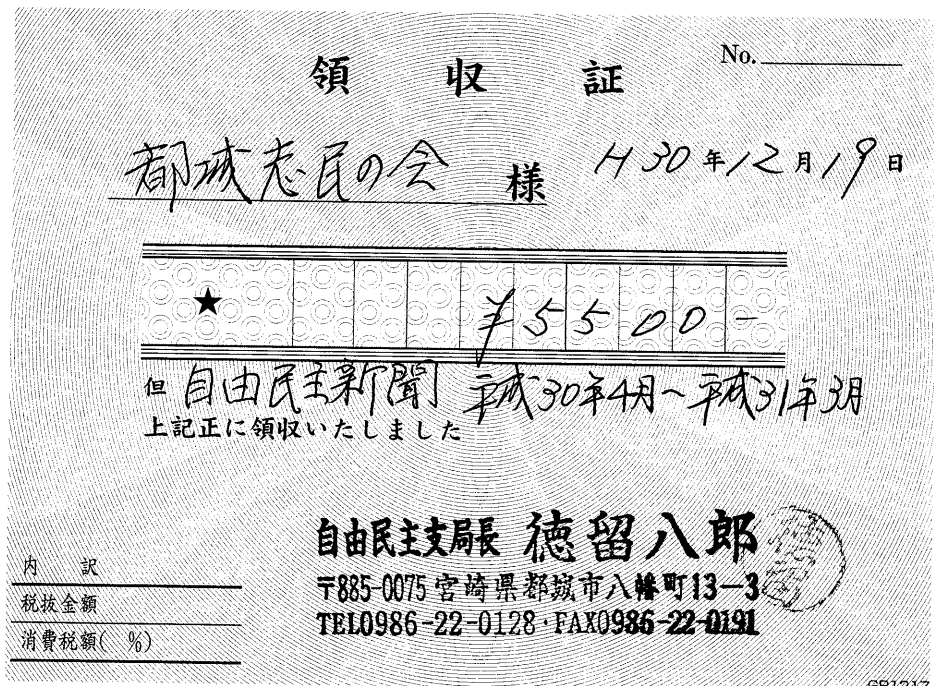 領収証 No.
都城志民の会 様 H30年12月19日
★ ¥5500-
但 自由民主新聞 平成30年4月～平成31年3月
上記正に領収いたしました
自由民主支局長 徳留八郎
〒885-0075 宮崎県都城市八幡町13-3
TEL0986-22-0128・FAX0986-22-0191
内 訳
税抜金額
消費税額( %)
GB1217